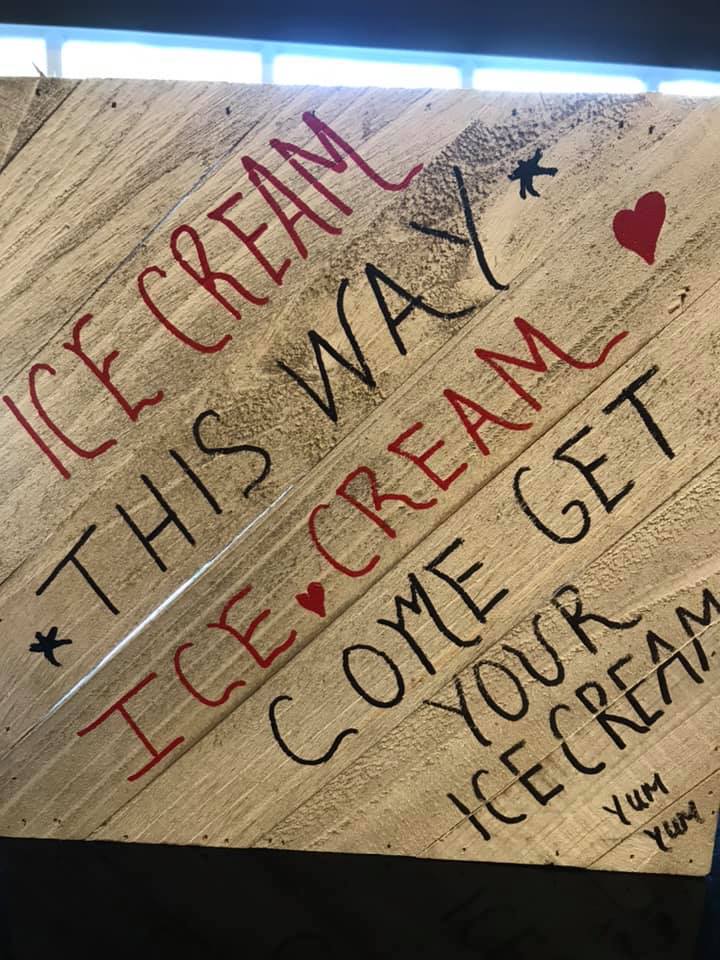 ICE CREAM
*THIS WAY*
ICE♥CREAM ♥
COME GET
YOUR
ICECREAM
YUM
YUM